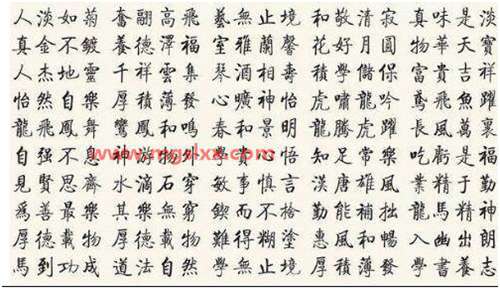 人淡如菊 奮翮高飛 藝無止境 和敬清寂 真味是淡
真金不鍍 養德澤福 室雅蘭馨 花好月圓 物華天寶
人杰地靈 千祥雲集 琴酒相壽 積學儲保 富貴吉祥
怡然自樂 厚積薄發 心曠神怡 虎嘯龍吟 鳶飛魚躍
龍飛鳳舞 鸞鳳和鳴 春和景明 龍騰虎躍 長風萬里
自强不息 神游物外 和心悟 知足常樂 吃虧是福
www.mgvlxx.com
見賢思齊 水滴石穿 敏事慎言 漢唐雄風 業精于勤
爲善最樂 其樂無窮 鍥而不捨 勤能補拙 龍馬精神
厚德載物 難得糊塗 惠風和暢 入幽出朗
馬到功成 道法自然 學無止境 厚積薄發 學書養志